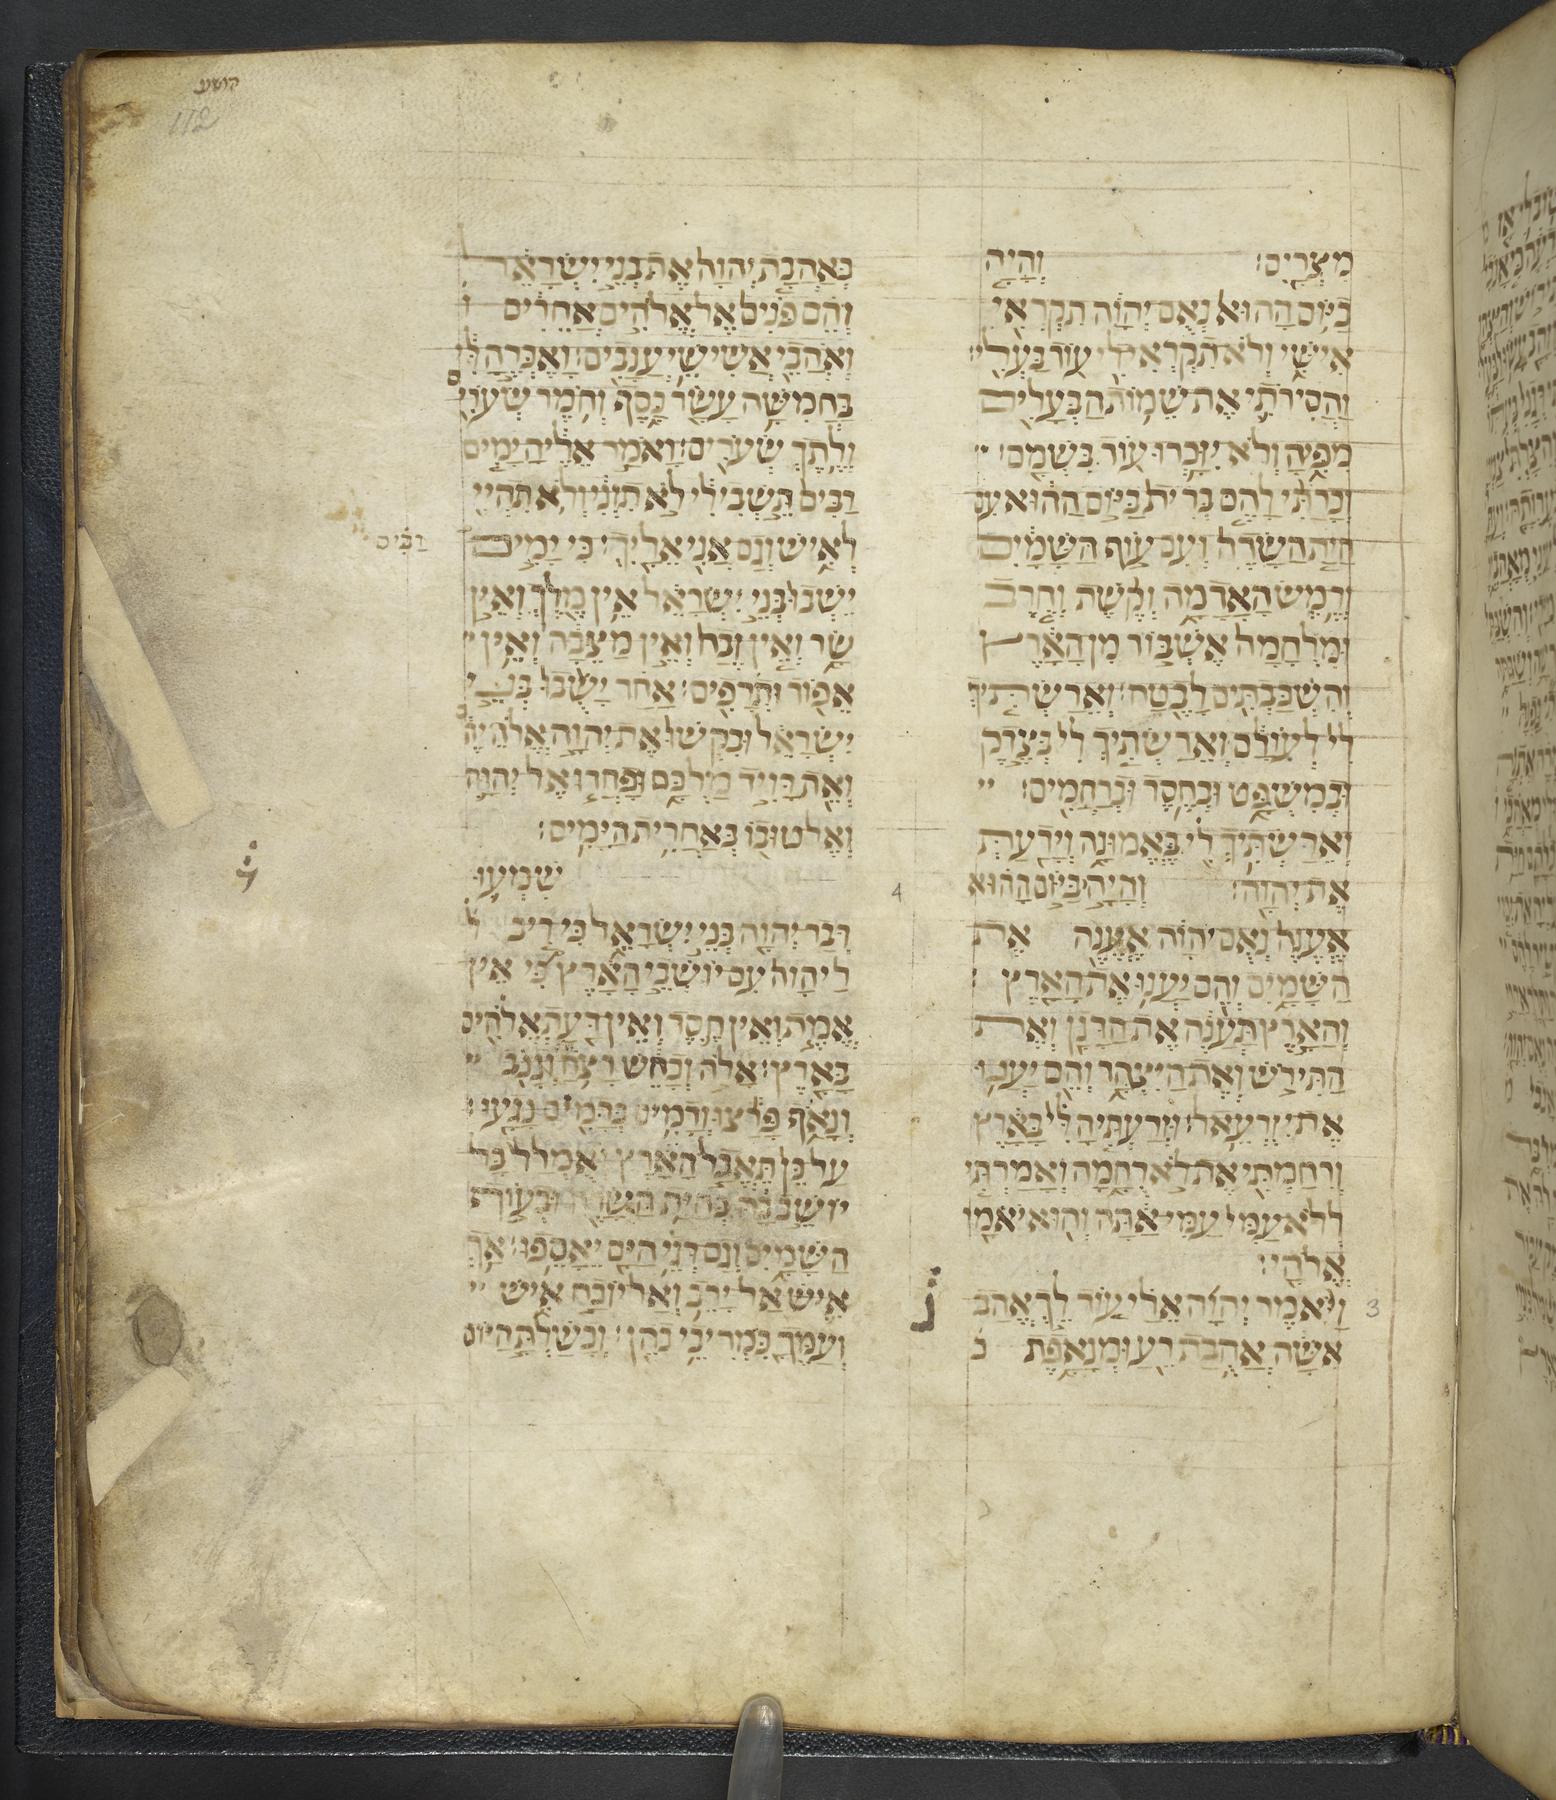 הושע
112
מִצְרָיִם׃ וְהָיָה
בַיּוֹם הַהוּא נְאֻם יְהוָה תִּקְרְאִי
אִישִׁי וְלֹא תִקְרְאִי לִי עוֹד בַּעְלִי׃
וַהֲסִרֹתִי אֶת שְׁמוֹת הַבְּעָלִים
מִפִּיהָ וְלֹא יִזָּכְרוּ עוֹד בִּשְׁמָם׃
וְכָרַתִּי לָהֶם בְּרִית בַּיּוֹם הַהוּא עִם
חַיַּת הַשָּׂדֶה וְעִם עוֹף הַשָּׁמַיִם
וְרֶמֶשׂ הָאֲדָמָה וְקֶשֶׁת וְחֶרֶב
וּמִלְחָמָה אֶשְׁבּוֹר מִן הָאָרֶץ
וְהִשְׁכַּבְתִּים לָבֶטַח׃ וְאֵרַשְׂתִּיךְ
לִי לְעוֹלָם וְאֵרַשְׂתִּיךְ לִי בְּצֶדֶק
וּבְמִשְׁפָּט וּבְחֶסֶד וּבְרַחֲמִים׃
וְאֵרַשְׂתִּיךְ לִי בֶּאֱמוּנָה וְיָדַעַתְּ
אֶת יְהוָה׃ וְהָיָה בַּיּוֹם הַהוּא
אֶעֱנֶה נְאֻם יְהוָה אֶעֱנֶה אֶת
הַשָּׁמָיִם וְהֵם יַעֲנוּ אֶת הָאָרֶץ׃
וְהָאָרֶץ תַּעֲנֶה אֶת הַדָּגָן וְאֶת
הַתִּירֹשׁ וְאֶת הַיִּצְהָר וְהֵם יַעֲנוּ
אֶת יִזְרְעֶאל׃ וּזְרַעְתִּיהָ לִּי בָּאָרֶץ
וְרִחַמְתִּי אֶת לֹא רֻחָמָה וְאָמַרְתִּי
לְלֹא עַמִּי עַמִּי אַתָּה וְהוּא יֹאמַר
אֱלֹהָי׃
וַיֹּאמֶר יְהוָה אֵלַי עוֹד לֵךְ אֱהַב
אִשָּׁה אֲהֻבַת רֵעַ וּמְנָאָפֶת
3
4
כְּאַהֲבַת יְהוָה אֶת בְּנֵי יִשְׂרָאֵל
וְהֵם פֹּנִים אֶל אֱלֹהִים אֲחֵרִים
וְאֹהֲבֵי אֲשִׁישֵׁי עֲנָבִים׃ וָאֶכְּרֶהָ לִּי
בַּחֲמִשָּׁה עָשָׂר כָּסֶף וְחֹמֶר שְׂעֹרִים
וְלֶתֶךְ שְׂעֹרִים׃ וָאֹמַר אֵלֶיהָ יָמִים
רַבִּים תֵּשְׁבִי לִי לֹא תִזְנִי וְלֹא תִהְיִי
לְאִישׁ וְגַם אֲנִי אֵלָיִךְ׃ כִּי יָמִים
רַבִּים
יֵשְׁבוּ בְּנֵי יִשְׂרָאֵל אֵין מֶלֶךְ וְאֵין
שָׂר וְאֵין זֶבַח וְאֵין מַצֵּבָה וְאֵין
אֵפוֹד וּתְרָפִים׃ אַחַר יָשֻׁבוּ בְּנֵי
יִשְׂרָאֵל וּבִקְשׁוּ אֶת יְהוָה אֱלֹהֵיהֶם
וְאֵת דָּוִיד מַלְכָּם וּפָחֲדוּ אֶל יְהוָה
וְאֶל טוּבוֹ בְּאַחֲרִית הַיָּמִים׃
שִׁמְעוּ
דְבַר יְהוָה בְּנֵי יִשְׂרָאֵל כִּי רִיב
לַיהוָה עִם יוֹשְׁבֵי הָאָרֶץ כִּי אֵין
אֱמֶת וְאֵין חֶסֶד וְאֵין דַּעַת אֱלֹהִים
בָּאָרֶץ׃ אָלֹה וְכַחֵשׁ וְרָצֹחַ וְגָנֹב
וְנָאֹף פָּרָצוּ וְדָמִים בְּדָמִים נָגָעוּ׃
עַל כֵּן תֶּאֱבַל הָאָרֶץ וְאֻמְלַל כָּל
יוֹשֵׁב בָּהּ בְּחַיַּת הַשָּׂדֶה וּבְעוֹף
הַשָּׁמָיִם וְגַם דְּגֵי הַיָּם יֵאָסֵפוּ׃ אַךְ
אִישׁ אַל יָרֵב וְאַל יוֹכַח אִישׁ
וְעַמְּךָ כִּמְרִיבֵי כֹהֵן׃ וְכָשַׁלְתָּ הַיּוֹם